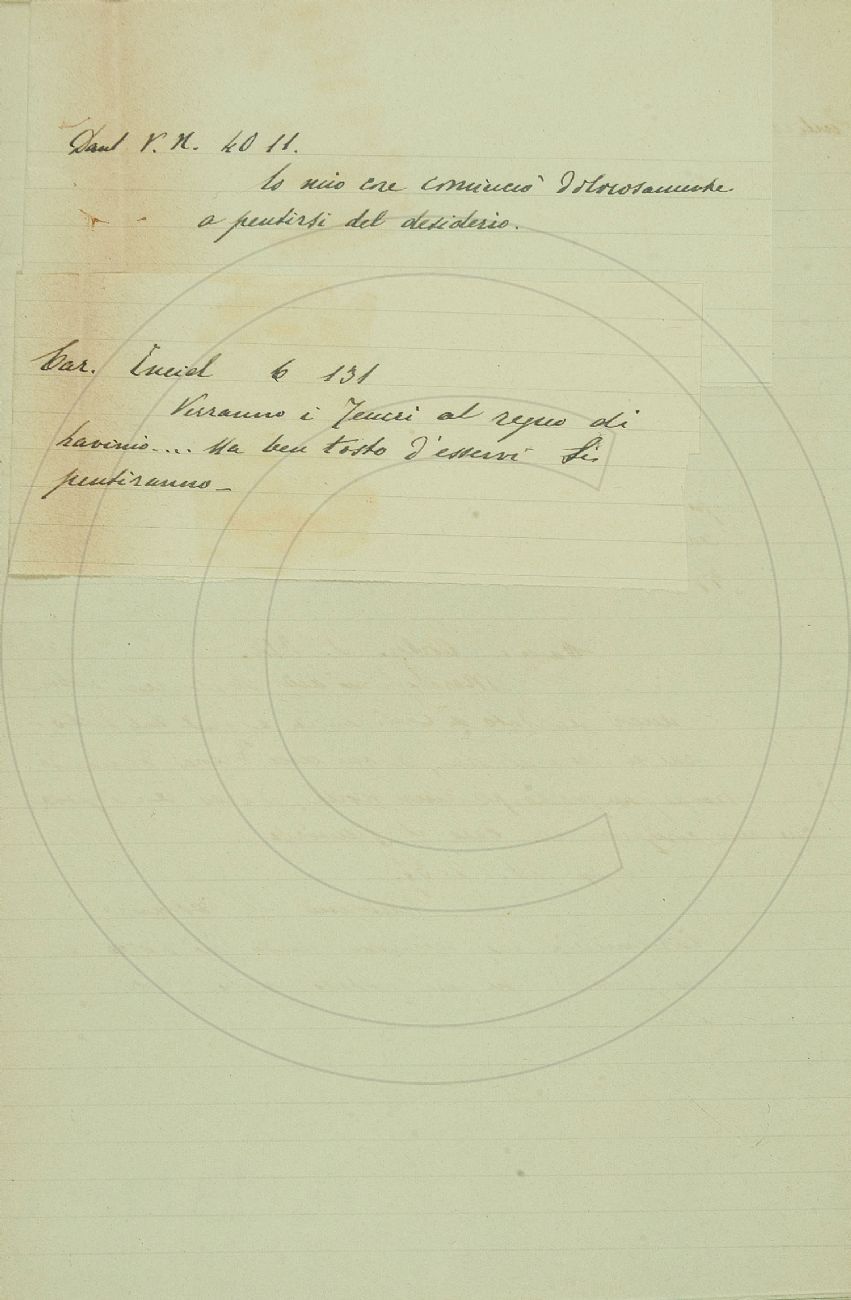 Dant V. N. 40 11.
Lo mio core cominciò dolorosamente
a pentirsi del desiderio.
Car. Eneid 6 131
Verranno i Teucri al regno di
Lavinio.... Ma ben tosto d'esservi Si
pentiranno_